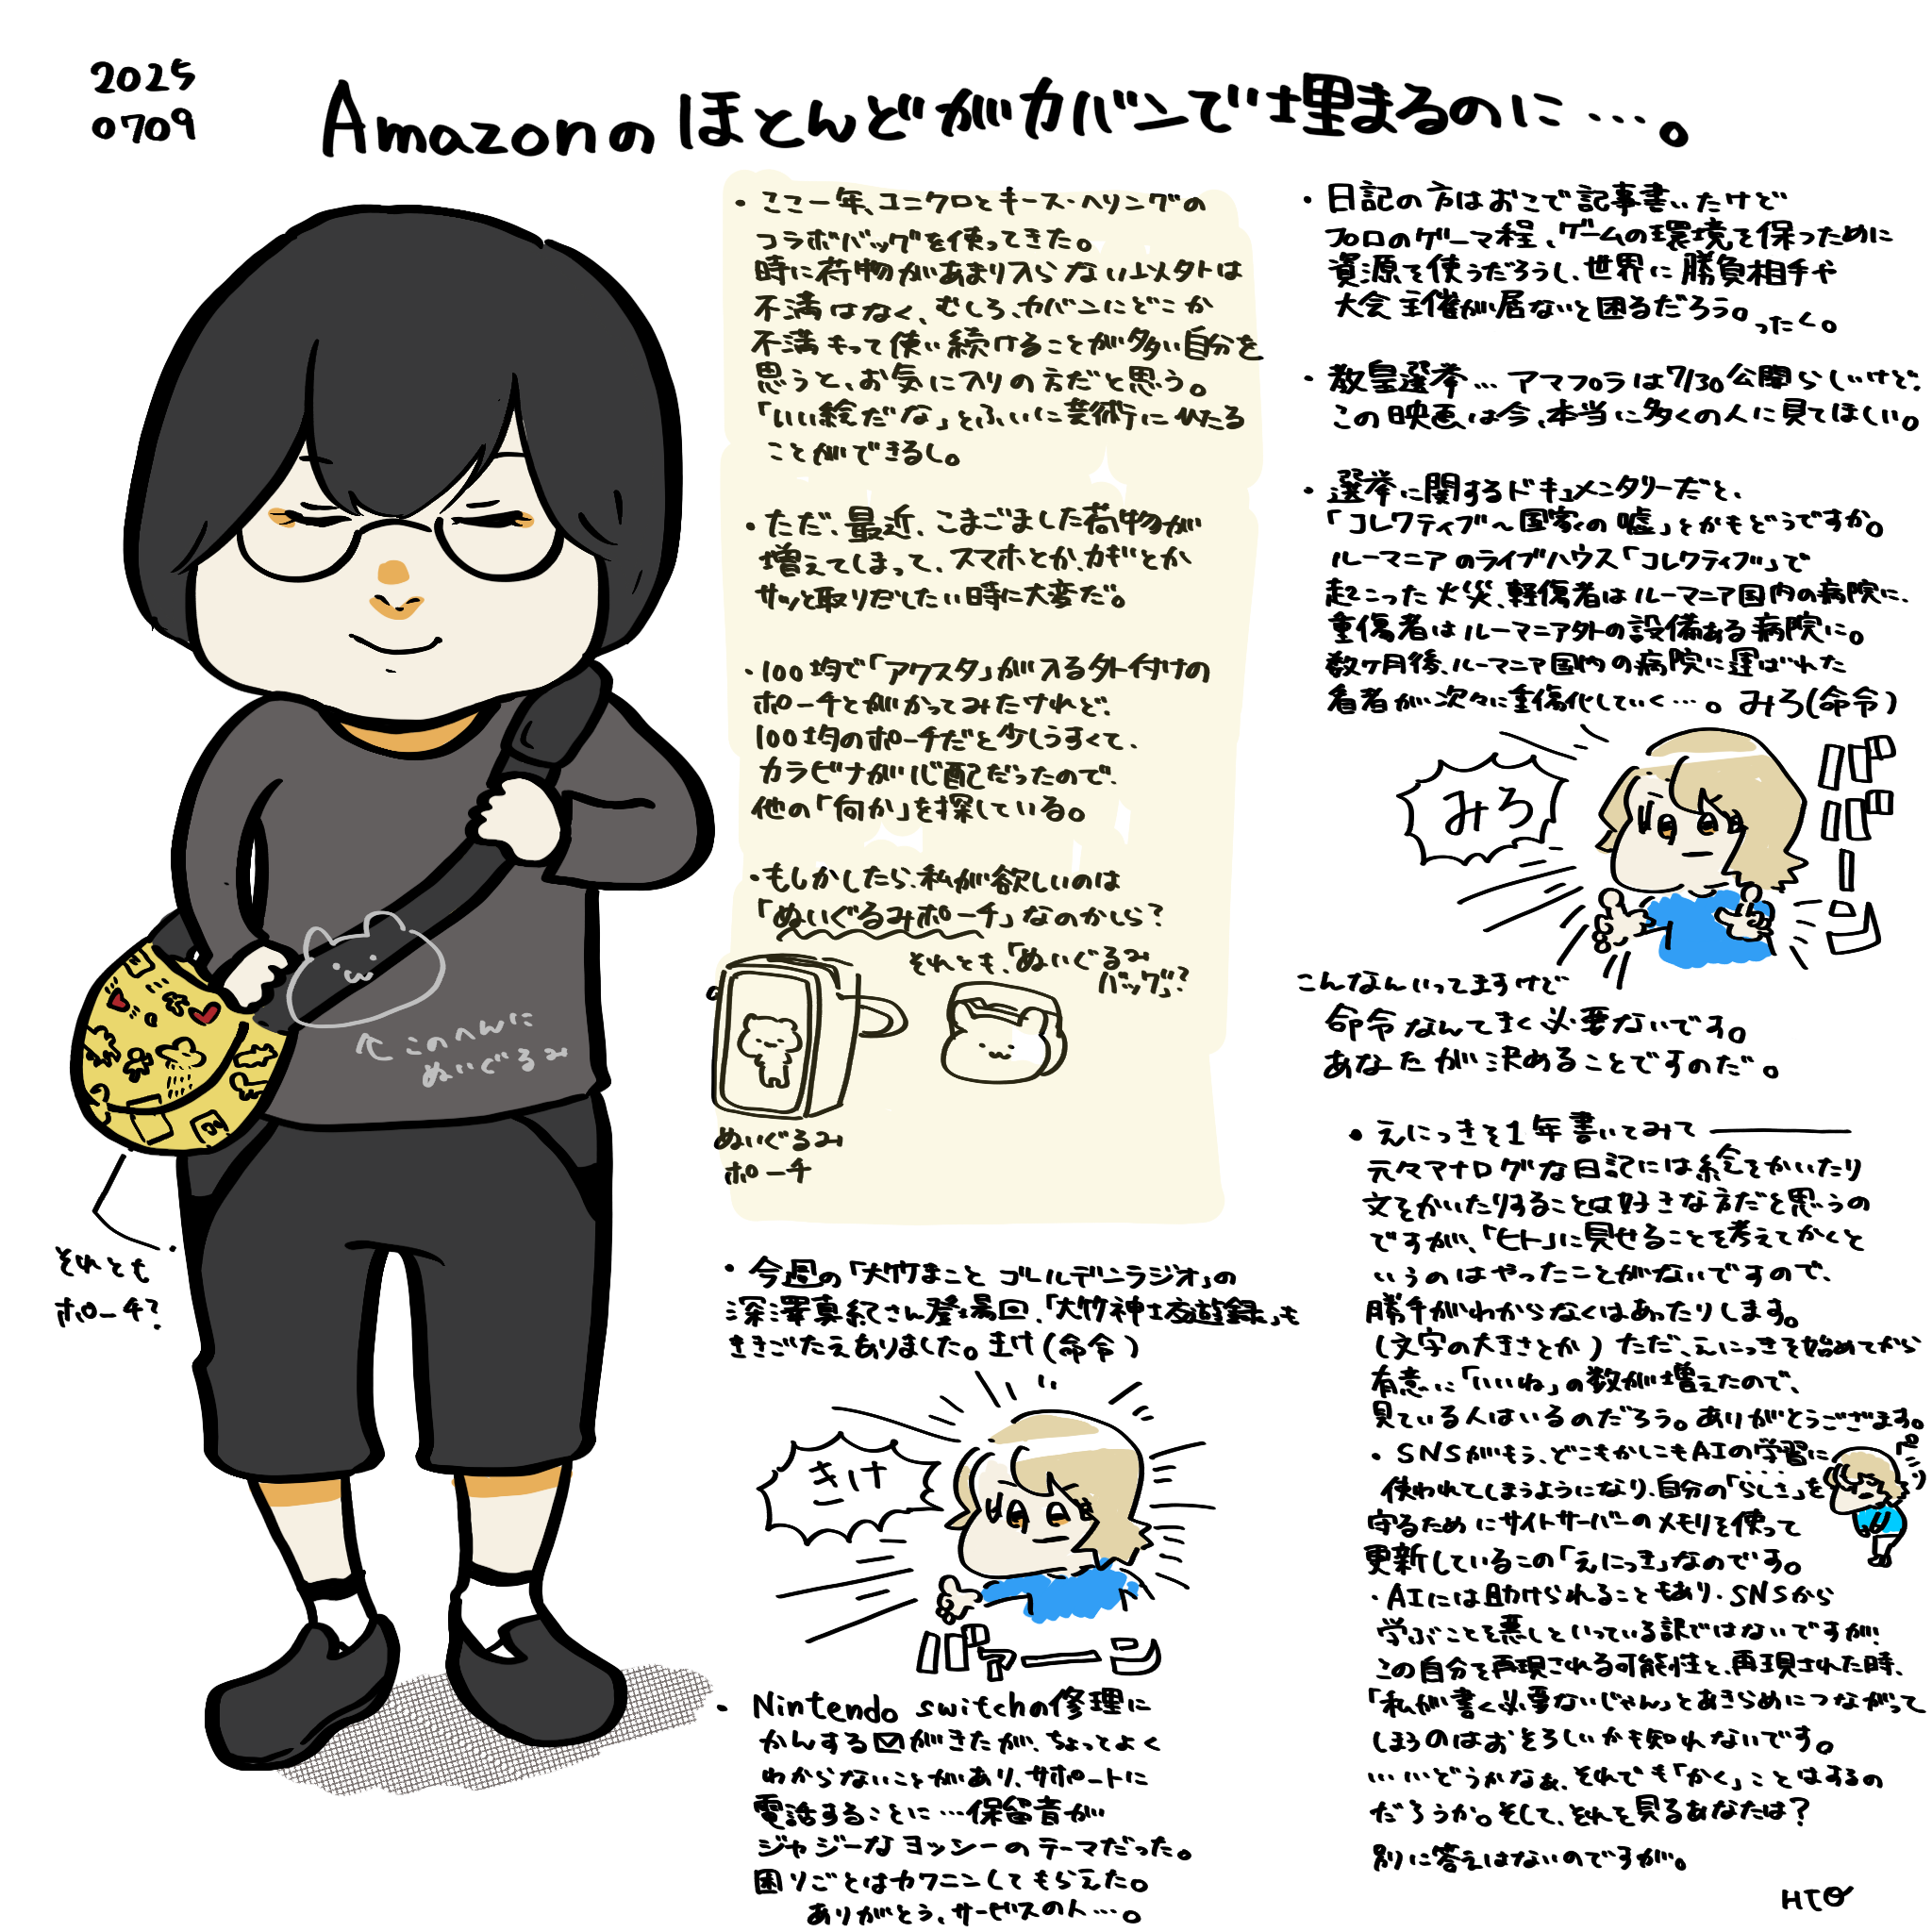 2025
0709
Amazonのほとんどがカバンで埋まるのに…。
・ここ一年、ユニクロとキース・ヘリングの
コラボバッグを使ってきた。
時に荷物があまり入らない以外は
不満はなく、むしろ、カバンにどこか
不満もって使い続けることが多い自分を
思うと、お気に入りの方だと思う。
「いい絵だな」とふいに芸術にひたる
ことができるし。
・ただ、最近、こまごました荷物が
増えてしまって、スマホとか、カギとか
サッと取りだしたい時に大変だ。
・100均で「アクスタ」が入る外付けの
ポーチとがかってみたけれど、
100均のポーチだと少しうすくて、
カラビナが心配だったので、
他の「何か」を探している。
・もしかしたら、私が欲しいのは
「ぬいぐるみポーチ」なのかしら?
それとも、「ぬいぐるみ
バッグ」?
ぬいぐるみ
ポーチ
←このへんに
ぬいぐるみ
それとも
ポーチ?
・今週の「大竹まこと ゴールデンラジオ」の
深澤真紀さん登場回、「大竹紳士交遊録」も
ききごたえありました。きけ(命令)
きけ
バァーン
・Nintendo switchの修理に
かんする✉がきたが、ちょっとよく
わからないことがあり、サポートに
電話することに…保留音が
ジャジーなヨッシーのテーマだった。
困りごとはカクニンしてもらえた。
ありがとう、サービスの人…。
・日記の方はおこで記事書いたけど
プロのゲーマ程、ゲームの環境を保つために
資源を使うだろうし、世界に勝負相手や
大会主催が居ないと困るだろう。ったく。
・教皇選挙…アマプラは7/30公開らしいけど、
この映画は今、本当に多くの人に見てほしい。
・選挙に関するドキュメンタリーだと、
「コレクティブ〜国家の嘘」とかもどうですか。
ルーマニアのライブハウス「コレクティブ」で
起こった火災、軽傷者はルーマニア国内の病院に、
重傷者はルーマニア外の設備ある病院に。
数ヶ月後、ルーマニア国内の病院に運ばれた
看者が次々に重傷化していく…。みろ(命令)
みろ
バァーン
こんなんいってますけど
命令なんてきく必要ないです。
あなたが決めることですのだ。
・えにっきを1年書いてみて
元々アナログな日記には絵をかいたり
文をかいたりすることは好きな方だと思うの
ですが、「ヒト」に見せることを考えてかくと
いうのはやったことがないですので、
勝手がわからなくはあったりします。
(文字の大きさとか)ただ、えにっきを始めてから
有意に「いいね」の数が増えたので、
見ている人はいるのだろう。ありがとうござます。
・SNSがもう、どこもかしにもAIの学習に
使われてしまうようになり、自分の「らしさ」を
守るためにサイトサーバーのメモリを使って
更新しているこの「えにっき」なのです。
・AIには助けられることもあり、SNSから
学ぶことを悪しといっている訳ではないですが、
この自分を再現される可能性と、再現された時、
「私が書く必要ないじゃん」とあきらめにつながって
しまうのはおそろしいかも知れないです。
……どうかなぁ、それでも「かく」ことはするの
だろうか。そして、それを見るあなたは?
別に答えはないのですが。
HTO